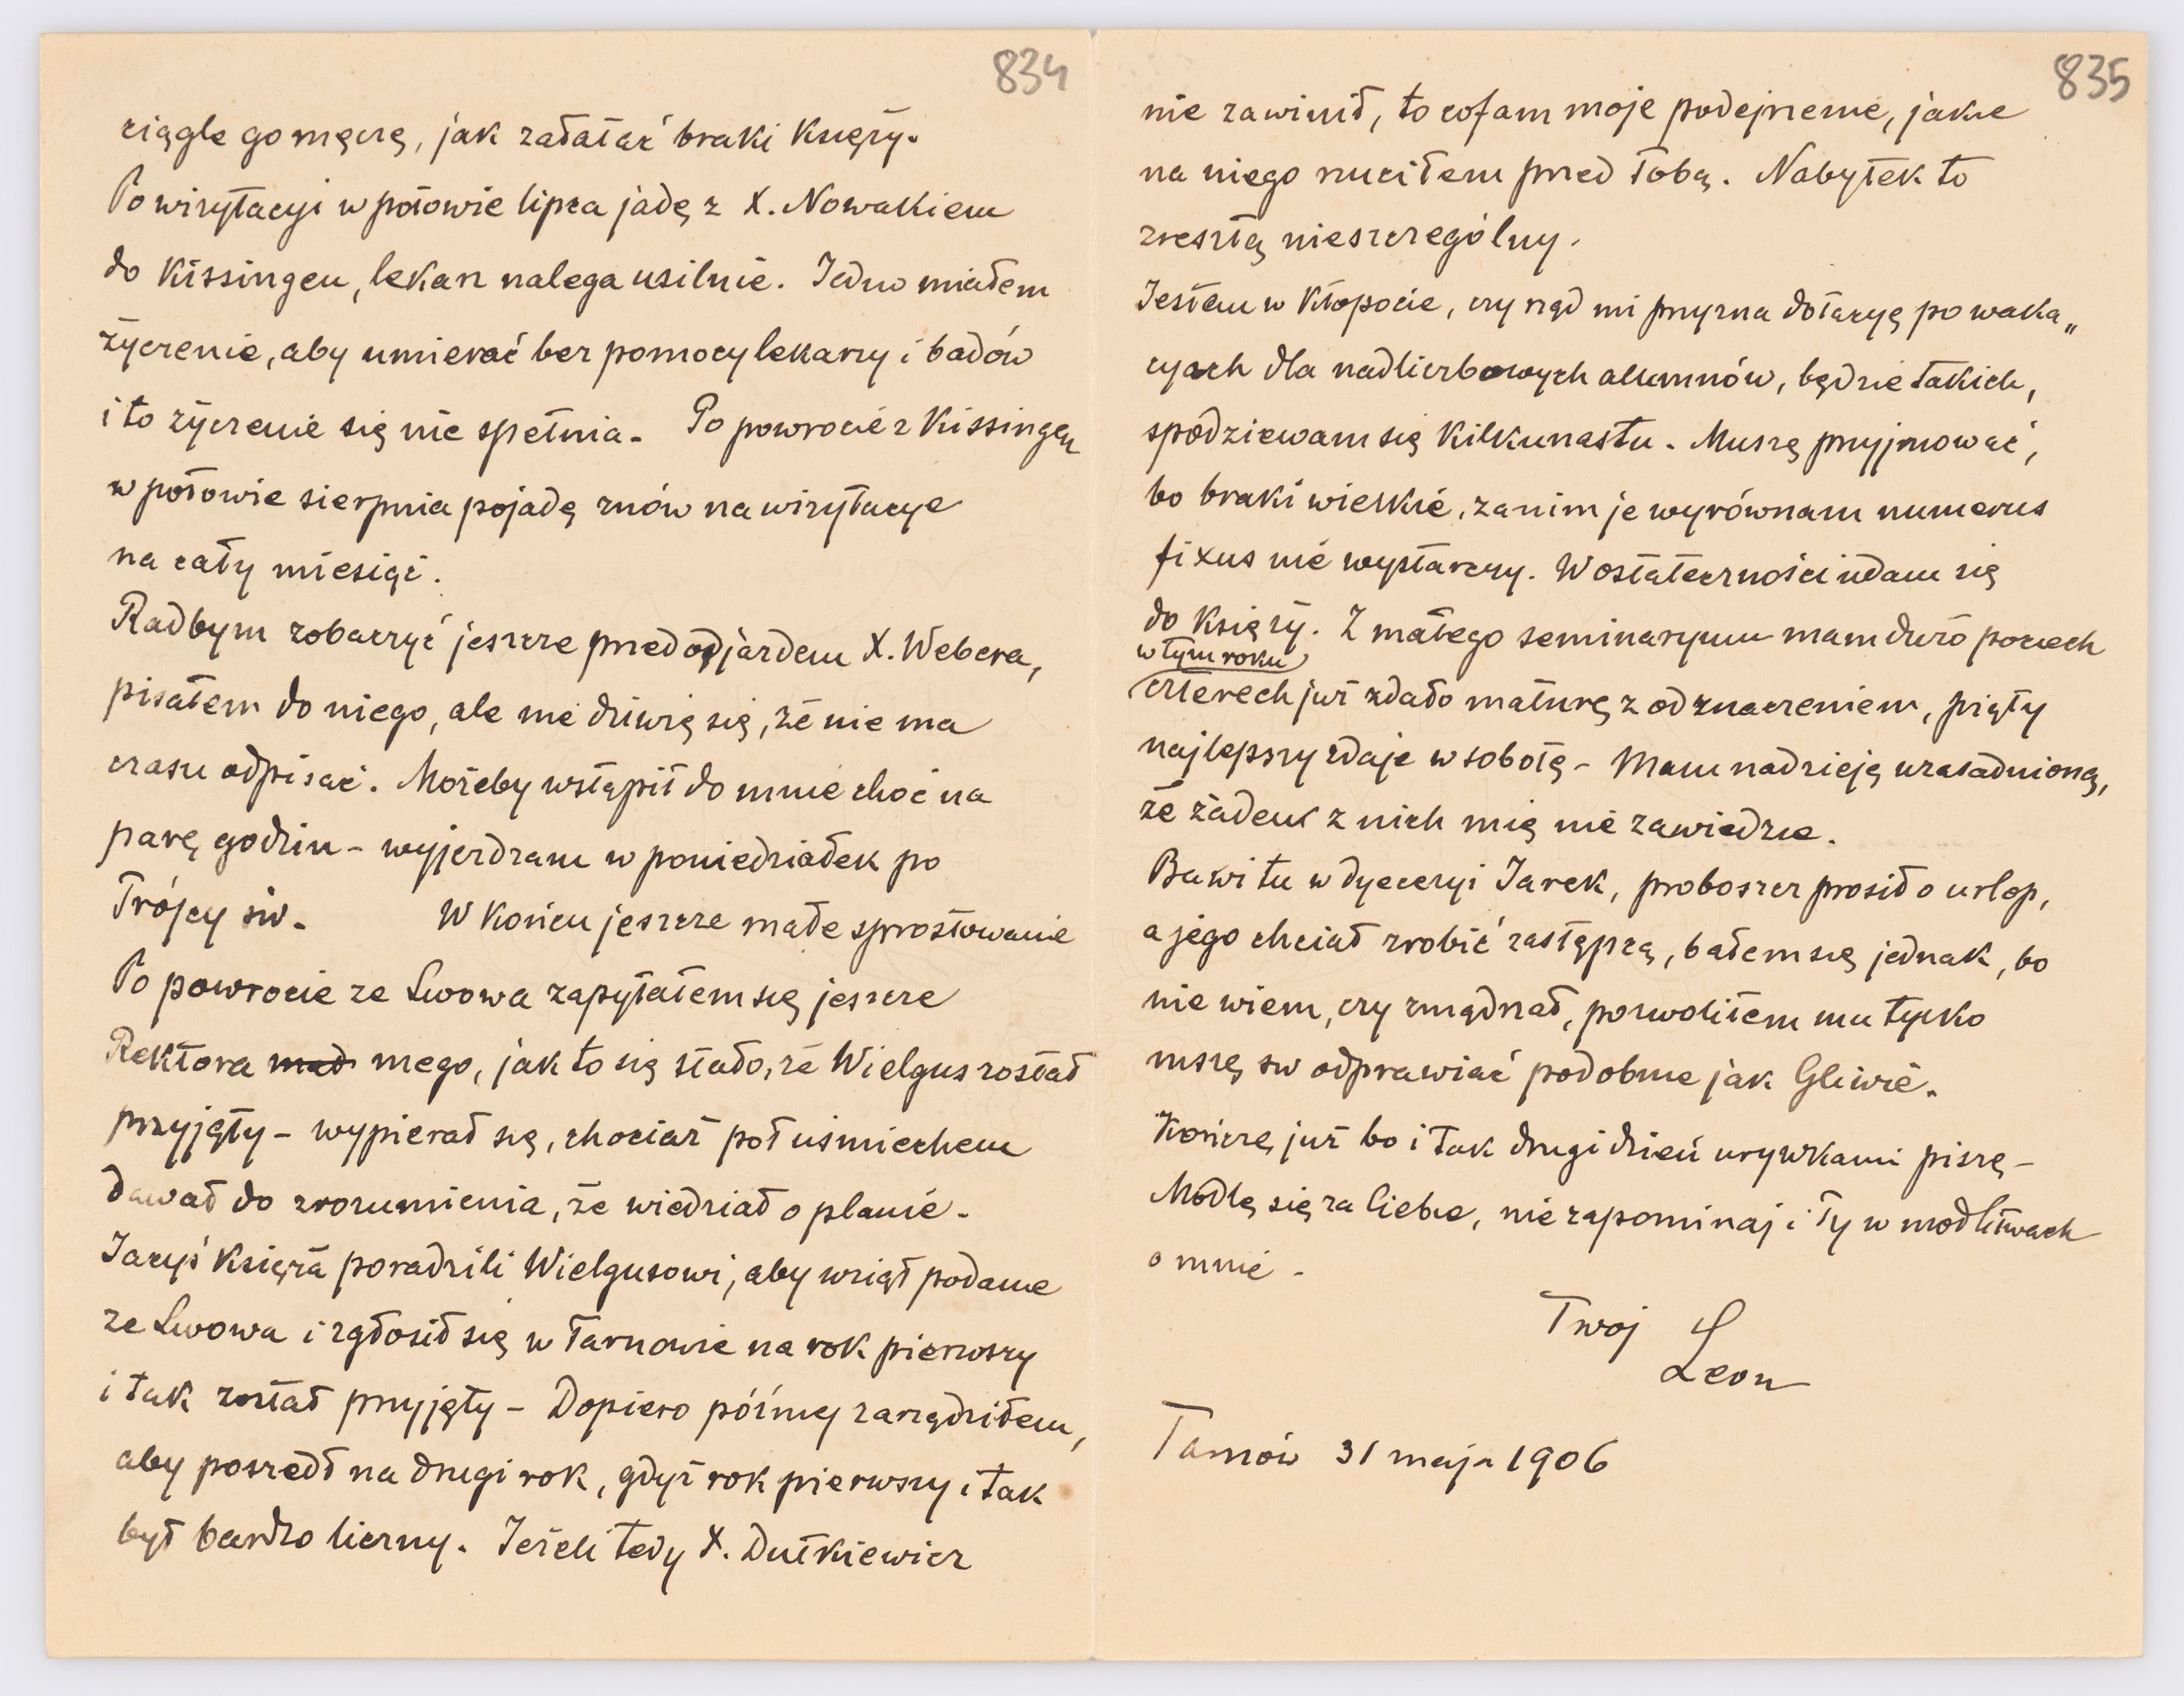 834
ciągle go męczę, jak załatać braki księży.
Po wizytacyi w połowie lipca jadę z X. Nowakiem
do Kissingen, lekarz nalega usilnie. Jedno miałem
życzenie, aby umierać bez pomocy lekarzy i badów
i to życzenie się nie spełnia. Po powrocie z Kissingen
w połowie sierpnia pojadę znów na wizytacye
na cały miesiąc.
Radbym zobaczyć jeszcze przed odjazdem X. Webera,
pisałem do niego, ale nie dziwię się, że nie ma
czasu odpisać. Możeby wstąpił do mnie choć na
parę godzin - wyjeżdżam w poniedziałek po
Trójcy św. W końcu jeszcze małe sprostowanie
Po powrocie ze Lwowa zapytałem się jeszcze
Rektora mego, jak to się stało, że Wielgus został
przyjęty - wypierał się, chociaż pół uśmiechem
dawał do zrozumienia, że wiedział o planie.
Jacyś księża poradzili Wielgusowi, aby wziął podanie
ze Lwowa i zgłosił się w Tarnowie na rok pierwszy
i tak został przyjęty - Dopiero później zarządziłem,
aby poszedł na drugi rok, gdyż rok pierwszy i tak
był bardzo liczny. Jeżeli tedy X. Dutkiewicz
835
nie zawinił, to cofam moje podejrzenie, jakie
na niego rzuciłem przed Tobą. Nabytek to
zresztą nieszczególny.
Jestem w kłopocie, czy rząd mi przyzna dotacyę po waka„
cyach dla nadliczbowych alumnów, będzie takich,
spodziewam się kilkunastu. Muszę przyjmować,
bo braki wielkie, zanim je wyrównam numerus
fixus nie wystarczy. W ostateczności udam się
do księży. Z małego seminaryum mam dużo pociech
w tym roku
czterech już zdało maturę z odznaczeniem, piąty
najlepszy zdaje w sobotę - Mam nadzieję uzasadnioną,
że żaden z nich mię nie zawiedzie.
Bawi tu w dyecezyi Jarek, proboszcz prosił o urlop,
a jego chciał zrobić zastępcą, bałem się jednak, bo
nie wiem, czy zmądrzał, pozwoliłem mu tylko
mszę św odprawiać podobnie jak Gliwie.
Kończę już bo i tak drugi dzień urywkami piszę -
Modlę się za Ciebie, nie zapominaj i Ty w modlitwach
o mnie -
Twój
Leon
Tarnów 31 maja 1906